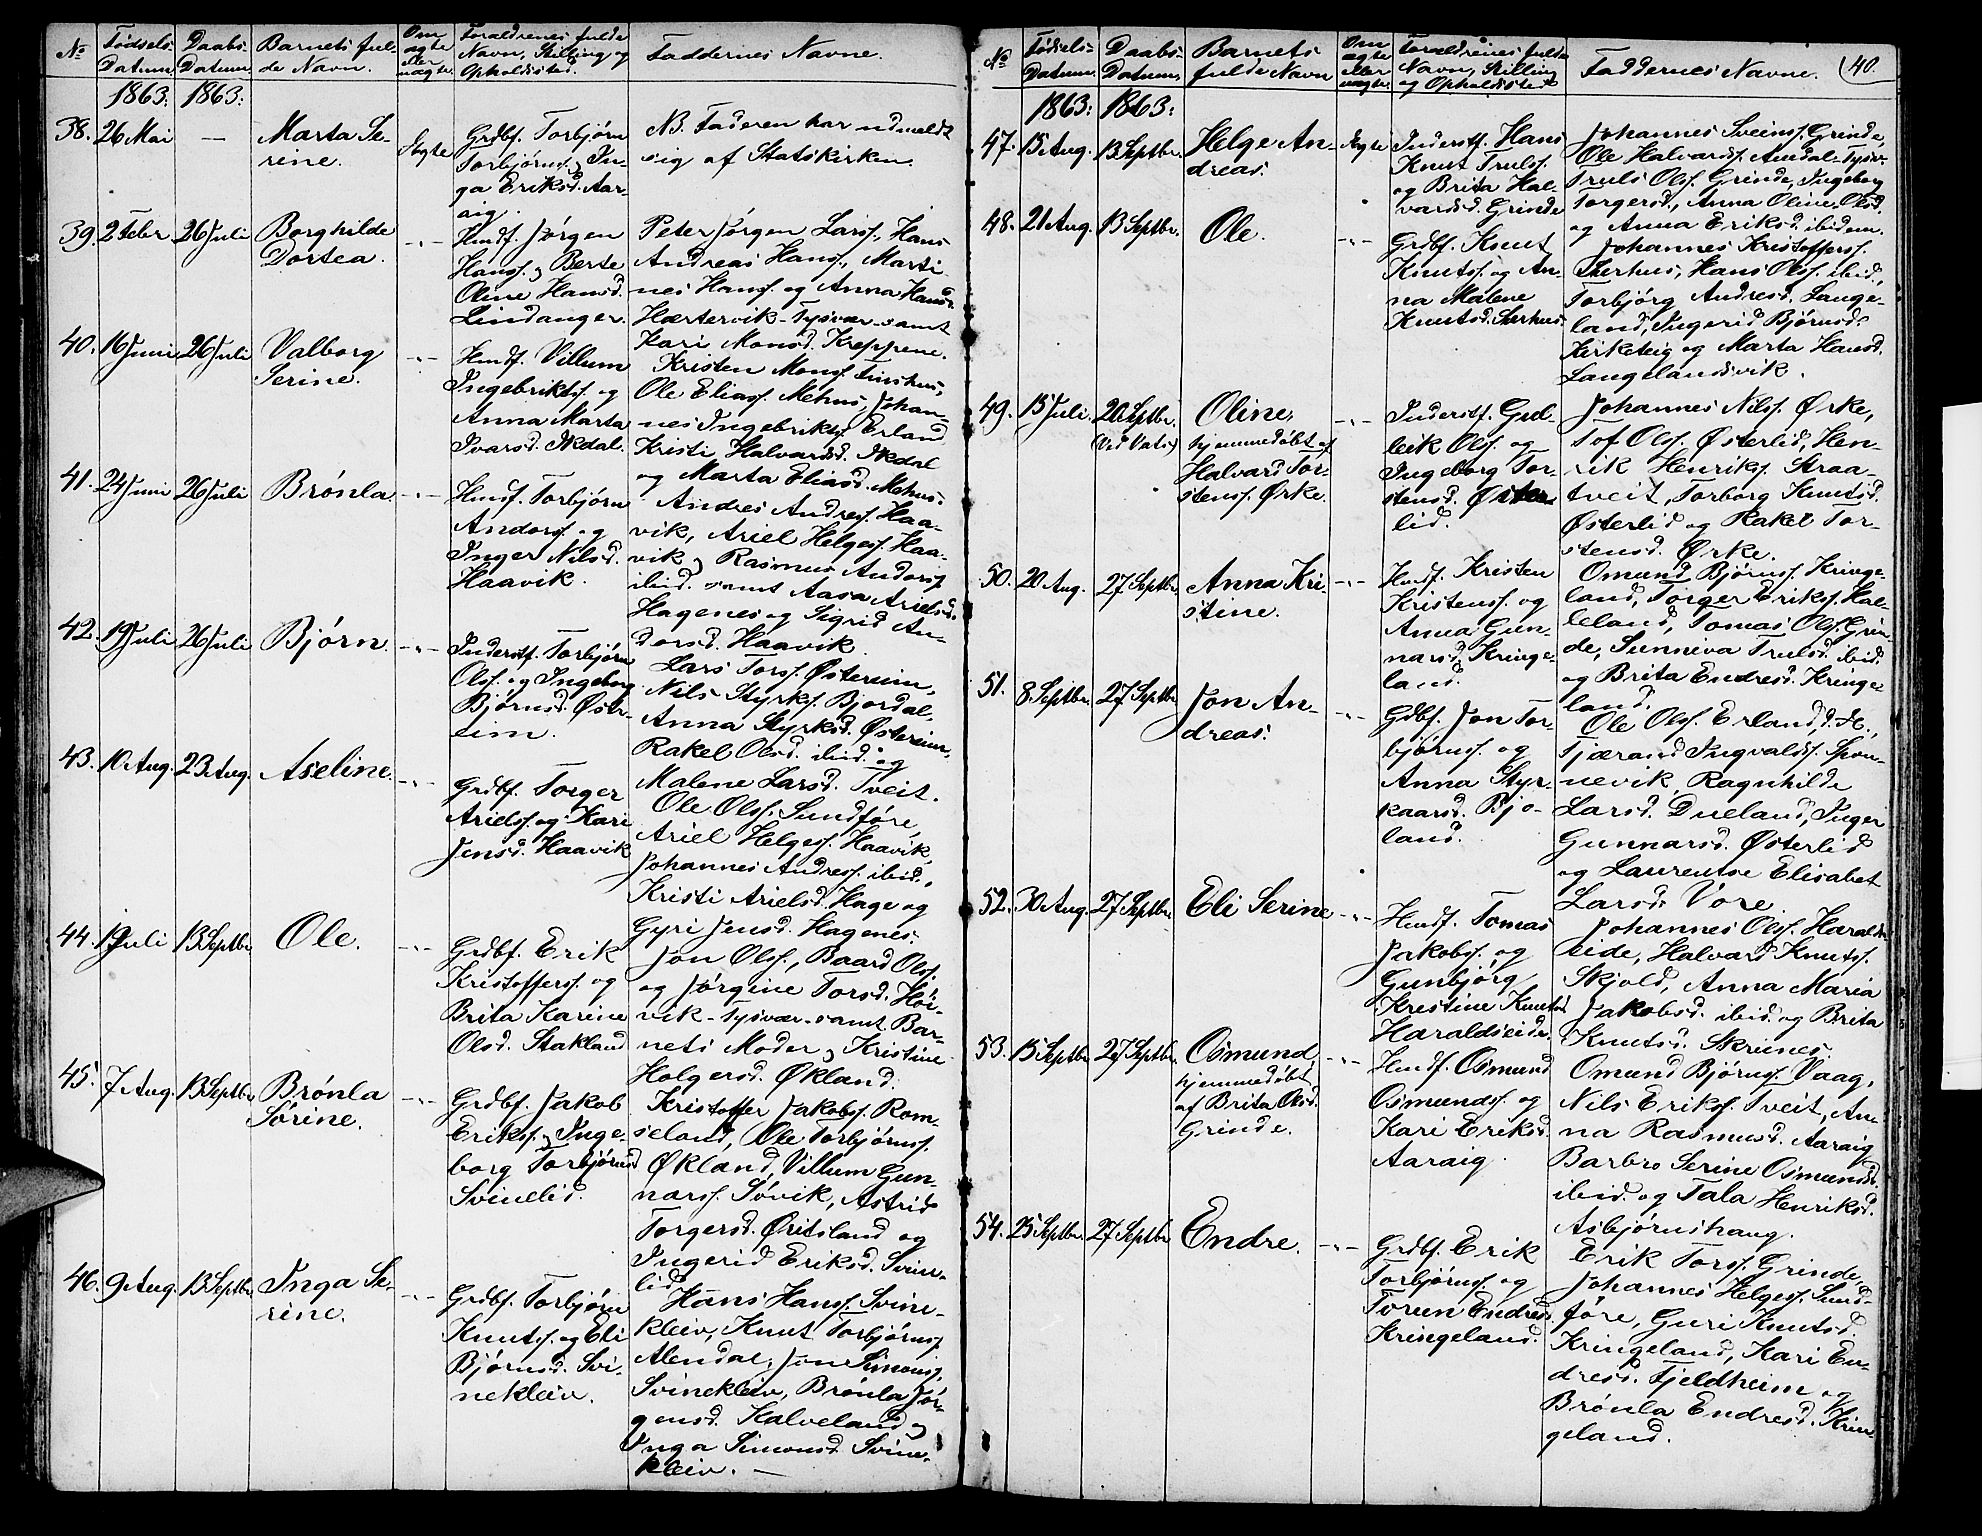 №
Fødsels-
Datum.
Daabs-
Datum.
Barnets ful-
de Navn.
Om
ægte
eller
uægte.
Forældrenes fulde
Navn, Stilling og
Opholdssted.
Faddernes Navne.
1863: 1863:
38. 26 Mai —
Marta Se-
rine.
Ægte
Grdbf. Torbjørn
Torbjørns. & In-
ga Eriksd. Aar-
aig.
NB. Faderen har udmeldt
sig af Statskirken.
39. 2 Febr 26 Juli
Borghilde
Dortea.
-"-
Husf. Jørgen
Hansf. & Berte
Oline Hansd.
Lindanger.
Peter Jørgen Larsf., Hans
Andreas Hansf., Marti-
nes Hansf. og Anna Hansd.
Hærtervik - Tysvær - samt
Kari Monsd. Kreppene.
40. 16 Juni 26 Juli
Valborg
Serine.
-"-
Husf. Villum
Ingebriktsf. og
Anna Marta
Ivarsd. Ikdal.
Kristen Monsf.
Ole Eliasf. Mehus, Johan-
nes Ingebriktsf. Erland
Kristi Halvardsd. Ikdal
og Marta Eliasd. Mehus.
41. 24 Juni 26 Juli
Brónla
-"-
Husf. Torbjørn
Andorsf. og
Inger Nilsd.
Haavik.
Andres Andresf. Haa-
vik, Ariel Helgesf. Haa-
vik & Rasmus Andorsf.
ibid. samt Aasa Arielsd.
Hagenes og Sigrid An-
dorsd. Haavik.
42. 19 Juli 26 Juli
Bjórn
-"-
Inderstf. Torbjørn
Olsf. og Ingeborg
Bjørnsd. Øster-
eim.
Lars Torsf. Østereim,
Nils Styrksf. Bjordal,
Anna Styrksd. Østereim,
Rakel Olsd. ibid. og
Malene Larsd. Tveit.
43. 10 Aug. 23 Aug.
Aseline.
-"-
Grdbf. Torger
Arielsf. og Kari
Jensd. Haavik
Ole Olsf. Sundføre,
Ariel Helgesf. Haavik,
Johannes Andresf. ibid.,
Kristi Arielsd. Hage og
Gyri Jensd. Hagenes.
44. 19 Juli 13 Septbr.
Ole.
-"-
Grdbf. Erik
Kristoffersf. og
Brita Karine
Olsd. Stakland
Jon Olsf., Baard Olsf.
og Jørgine Torsd. Høi-
vik - Tysvær - samt Bar-
nets Moder & Kristine
Holgersd. Økland.
45. 7 Aug. 13 Septbr.
Brónla
Sørine.
-"-
Grdbf. Jakob
Eriksf. & Inge-
borg Torbjørnsd
Svinelid.
Kristoffer Jakobsf. Rom-
seland, Ole Torbjørnsf.
Økland, Villum Gun-
narsf. Søvik, Astrid
Torgersd. Øritsland og
Ingerid Eriksd. Svine-
lid.
46. 9 Aug. 13 Septbr.
Inga Se-
rine.
-"-
Grdbf. Torbjørn
Knutsf. og Eli
Bjørnsd. Svi-
nekleiv.
Hans Hansf. Svine-
kleiv, Knut Torbjørnsf.
Alendal, Jon Simonsf.
Svinekleiv, Brónla Jør-
gensd. Kalveland &
Inga Simonsd. Svine-
kleiv. —
№
Fødsels-
Datum.
Daabs-
Datum.
Barnets
fulde Navn
Om
ægte
eller
uægte.
Forældrenes fulde
Navn, Stilling
og Opholdssted
Faddernes Navne.
40.
1863: 1863:
47. 15 Aug. 13 Septbr.
Helge An-
dreas.
Ægte
Inderstf. Hans
Knut Trulsf.
og Brita Hal-
vardsd. Grinde
Johannes Sveinsf. Grinde,
Ole Halvardsf. Amdal - Tysv.
Truls Olsf. Grinde, Ingeborg
Torgersd., Anna Oline Olsd.
og Anna Eriksd. ibidem.
48. 21 Aug. 13 Septbr.
Ole.
-"-
Grdbf. Knut
Knutsf. og An-
na Malene
Knutsd. Sørhus
Johannes Kristoffersf.
Sørhus, Hans Olsf. ibid.,
Torbjørg Andresd. Lange-
land, Ingerid Bjørnsd.
Kirketeig og Marta Hansd.
Langelandsvik.
49. 15 Juli. 20 Septbr.
(Ved Vats)
Oline,
hjemmedøbt af
Halvard Tor-
stensf. Ørke.
-"-
Inderstf. Gul-
leik Olsf. og
Ingeborg Tor-
stensd. Øster-
lid.
Johannes Nilsf. Ørke,
Tof Olsf. Østerlid, Hen-
rik Henriksf. Straa-
tveit, Torborg Knutsd.
Østerlid og Rakel Tor-
stensd. Ørke.
50. 20 Aug. 27 Septbr.
Anna Kri-
stine.
-"-
Husf. Kristen
Kristensf. og
Anna Gun-
narsd. Kringe-
land.
Omund Bjørnsf. Kringe-
land, Torger Eriksf. Hal-
leland, Tomas Olsf. Grin-
de, Sunniva Trulsd. ibid.
og Brita Endresd. Kringe-
land.
51. 8 Septbr. 27 Septbr.
Jon An-
dreas.
-"-
Gdbf. Jon Tor-
bjørnsf. og
Anna Styr-
kaarsd. Bjo-
land.
Ole Olsf. Erland, d. Æ.,
Tjærand Ingvaldsf. Spon-
nevik, Ragnhilde
Larsd. Dueland, Inger
Gunnarsd. Østerlid
og Laurentse Elisabet
Larsd. Vore.
52. 30 Aug. 27 Septbr.
Eli Serine
-"-
Husf. Tomas
Jakobsf. og
Gunbjørg
Kristine Knutsd
Haraldseide.
Johannes Olsf. Haralds-
eide, Halvard Knutsf.
Skjold, Anna Maria
Jakobsd. ibid. og Brita
Knutsd. Skrunes.
53. 15 Septbr. 27 Septbr.
Osmund,
hjemmedøbt
af Brita Olsd.
Grinde.
-"-
Husf. Osmund
Osmundsf. og
Kari Eriksd.
Aaraig.
Omund Bjørnsf. Vaag,
Nils Eriksf. Tveit, An-
na Rasmusd. Aaraig
Barbro Serine Osmundsd.
ibid. og Tala Henriksd.
Asbjørnshaug.
54. 25 Septbr. 27 Septbr.
Endre.
-"-
Grdbf. Erik
Torbjørnsf. og
Toren Endresd.
Kringeland.
Erik Torsf. Grinde,
Johannes Helgesf. Sund-
føre, Guri Knutsd.
Kringeland, Kari En-
dresd. Fjeldheim og
Brónla Endresd. Krin-
geland.